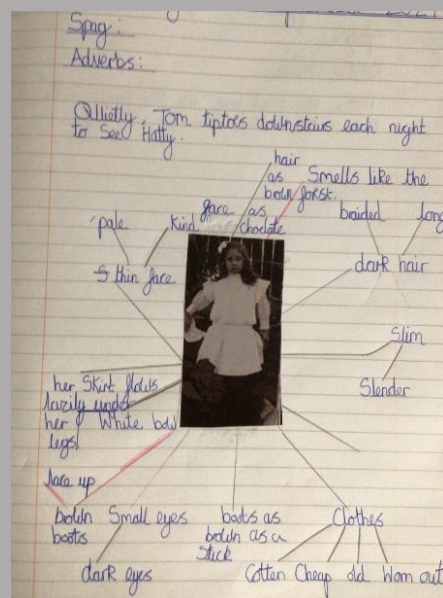 Spag:
Adverbs:
Qllietly, Tom tiptoes downstairs each night
to see Hatty.
hair
as
bown
face as
choclate
Smells like the
forst.
braided
long
dark hair
'pale
Kind
thin face
Slim
Slender
her Skirt
lazily under
her
legs
White bow
lace up
bown
boots
Small eyes
dark eyes
boots as
bown as a
Stick
Clothes
Cotten Cheap old Worn out